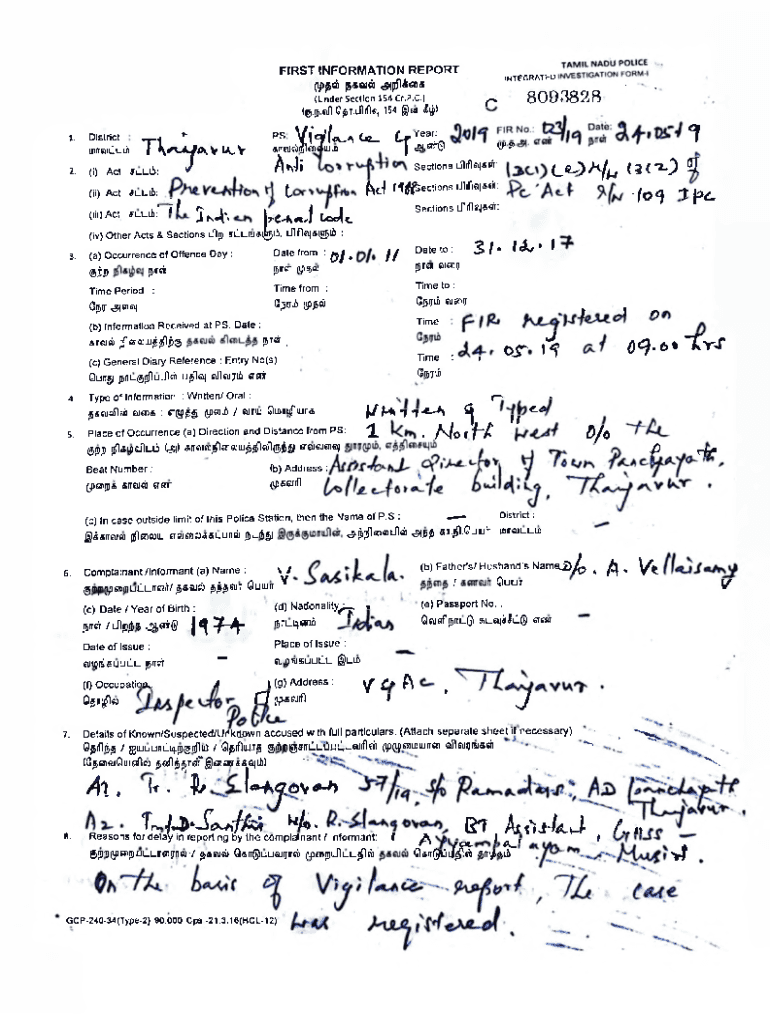 TAMIL NADU POLICE
FIRST INFORMATION REPORT
INTEGRATED INVESTIGATION FORM-I
முதல் தகவல் அறிக்கை
(Under Section 154 Cr.P.C.)
C 8093828
1. District : Thanjavur PS: Vigilance & Year: 2019 FIR No.: 03/19 Date: 24.05.19
மாவட்டம் காவல்நிலையம் ஆண்டு மு.த.அ. எண் நாள்
Anti Corruption
2. (i) Act சட்டம்: Prevention of Corruption Act 1988 Sections பிரிவுகள்: 13(1)(e) r/w 13(2) of
(ii) Act சட்டம்: Sections பிரிவுகள்: PC Act r/w 109 IPC
(iii) Act சட்டம்: The Indian penal code Sections பிரிவுகள்:
(iv) Other Acts & Sections பிற சட்டங்களும், பிரிவுகளும் :
3. (a) Occurrence of Offence Day : Date from : 01.01.11 Date to : 31.12.17
குற்ற நிகழ்வு நாள் நாள் முதல் நாள் வரை
Time Period : Time from : Time to :
நேர அளவு நேரம் முதல் நேரம் வரை
(b) Information Received at PS. Date : Time : FIR registered on
காவல் நிலையத்திற்கு தகவல் கிடைத்த நாள் நேரம் 24.05.19 at 09.00 hrs
(c) General Diary Reference : Entry No(s) Time :
பொது நாட்குறிப்பின் பதிவு விவரம் எண் நேரம்
4. Type of Information : Written/ Oral : Written & Typed
தகவலின் வகை : எழுத்து மூலம் / வாய் மொழியாக
5. Place of Occurrence (a) Direction and Distance from PS: 1 Km. North West O/o the
குற்ற நிகழ்விடம் (அ) காவல்நிலையத்திலிருந்து எவ்வளவு தூரமும், எத்திசையும்
Beat Number : (b) Address : Assistant Director of Town Panchayath,
முறைக் காவல் எண் முகவரி Collectorate building, Thanjavur.
(c) In case outside limit of this Police Station, then the Name of P.S : — District : —
இக்காவல் நிலைய எல்லைக்கப்பால் நடந்து இருக்குமாயின், அந்நிலையில் அந்த கா.நி.பெயர் மாவட்டம்
6. Complainant /Informant (a) Name : V. Sasikala. (b) Father's/ Husband's Name D/o. A. Vellaisamy
குற்றமுறையீட்டாளர்/ தகவல் தந்தவர் பெயர் தந்தை / கணவர் பெயர்
(c) Date / Year of Birth : 1974 (d) Nationality : Indian (e) Passport No. : —
நாள் / பிறந்த ஆண்டு நாட்டினம் வெளிநாட்டு கடவுச்சீட்டு எண்
Date of Issue : — Place of Issue : —
வழங்கப்பட்ட நாள் வழங்கப்பட்ட இடம்
(f) Occupation Inspector of Police (g) Address : V & AC, Thanjavur.
தொழில் முகவரி
7. Details of Known/Suspected/Unknown accused with full particulars. (Attach separate sheet if necessary)
தெரிந்த / ஐயப்பாட்டிற்குரிய / தெரியாத குற்றஞ்சாட்டப்பட்டவரின் முழுமையான விவரங்கள்
(தேவையெனில் தனித்தாள் இணைக்கவும்)
A1. Tr. R. Elangovan 57/19, S/o Ramadass, AD panchayath Thanjavur.
A2. Tmt.D. Santhi W/o. R. Elangovan, BT Assistant, GHSS —
8. Reasons for delay in reporting by the complainant / Informant: Ayyampalayam, Musiri.
குற்றமுறையீட்டாளரால் / தகவல் கொடுப்பவரால் முறையீட்டதில் தகவல் கொடுப்பதில் தாமதம்
On the basis of Vigilance report, The case
was registered.
* GCP-240-34(Type-2) 90,000 Cps -21.3.16(HCL-12)